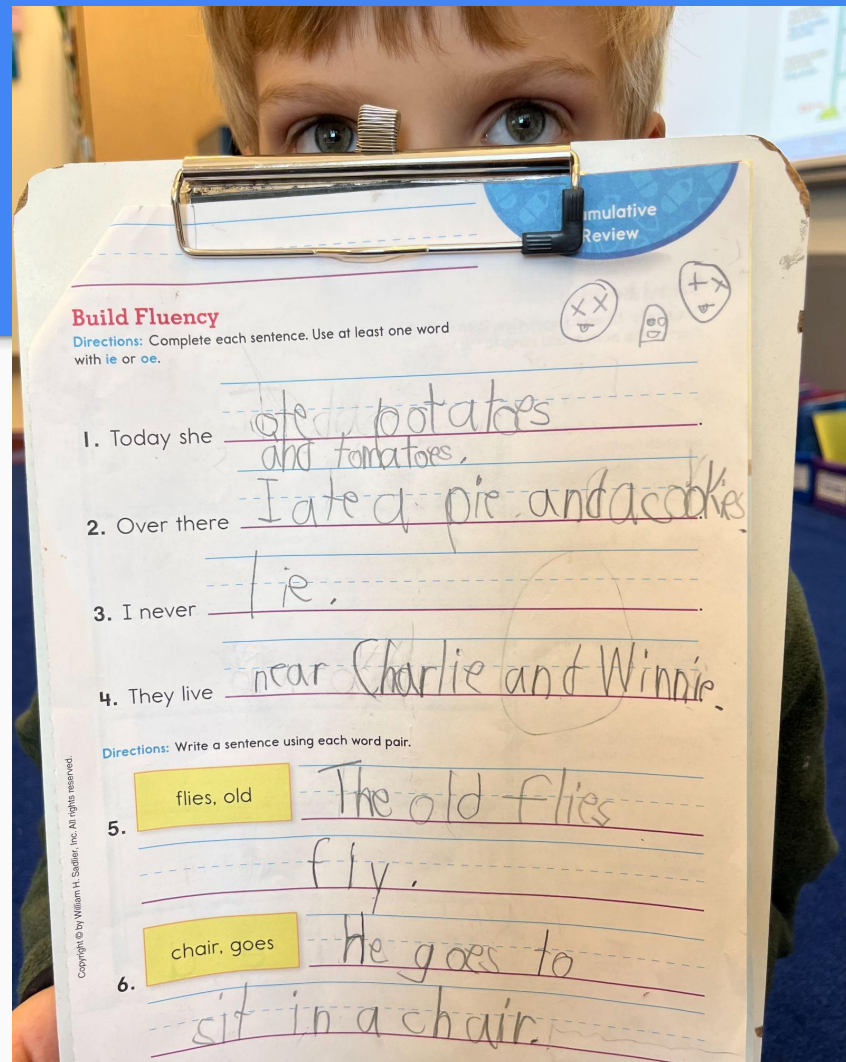 mulative
Review
Build Fluency
Directions: Complete each sentence. Use at least one word
with ie or oe.
1. Today she ate potatoes.
and tomatoes.
2. Over there I ate a pie and a cookies.
3. I never lie. .
4. They live near Charlie and Winnie.
Directions: Write a sentence using each word pair.
flies, old
5. The old flies
fly.
chair, goes
6. He goes to
sit in a chair.
Copyright © by William H. Sadlier, Inc. All rights reserved.